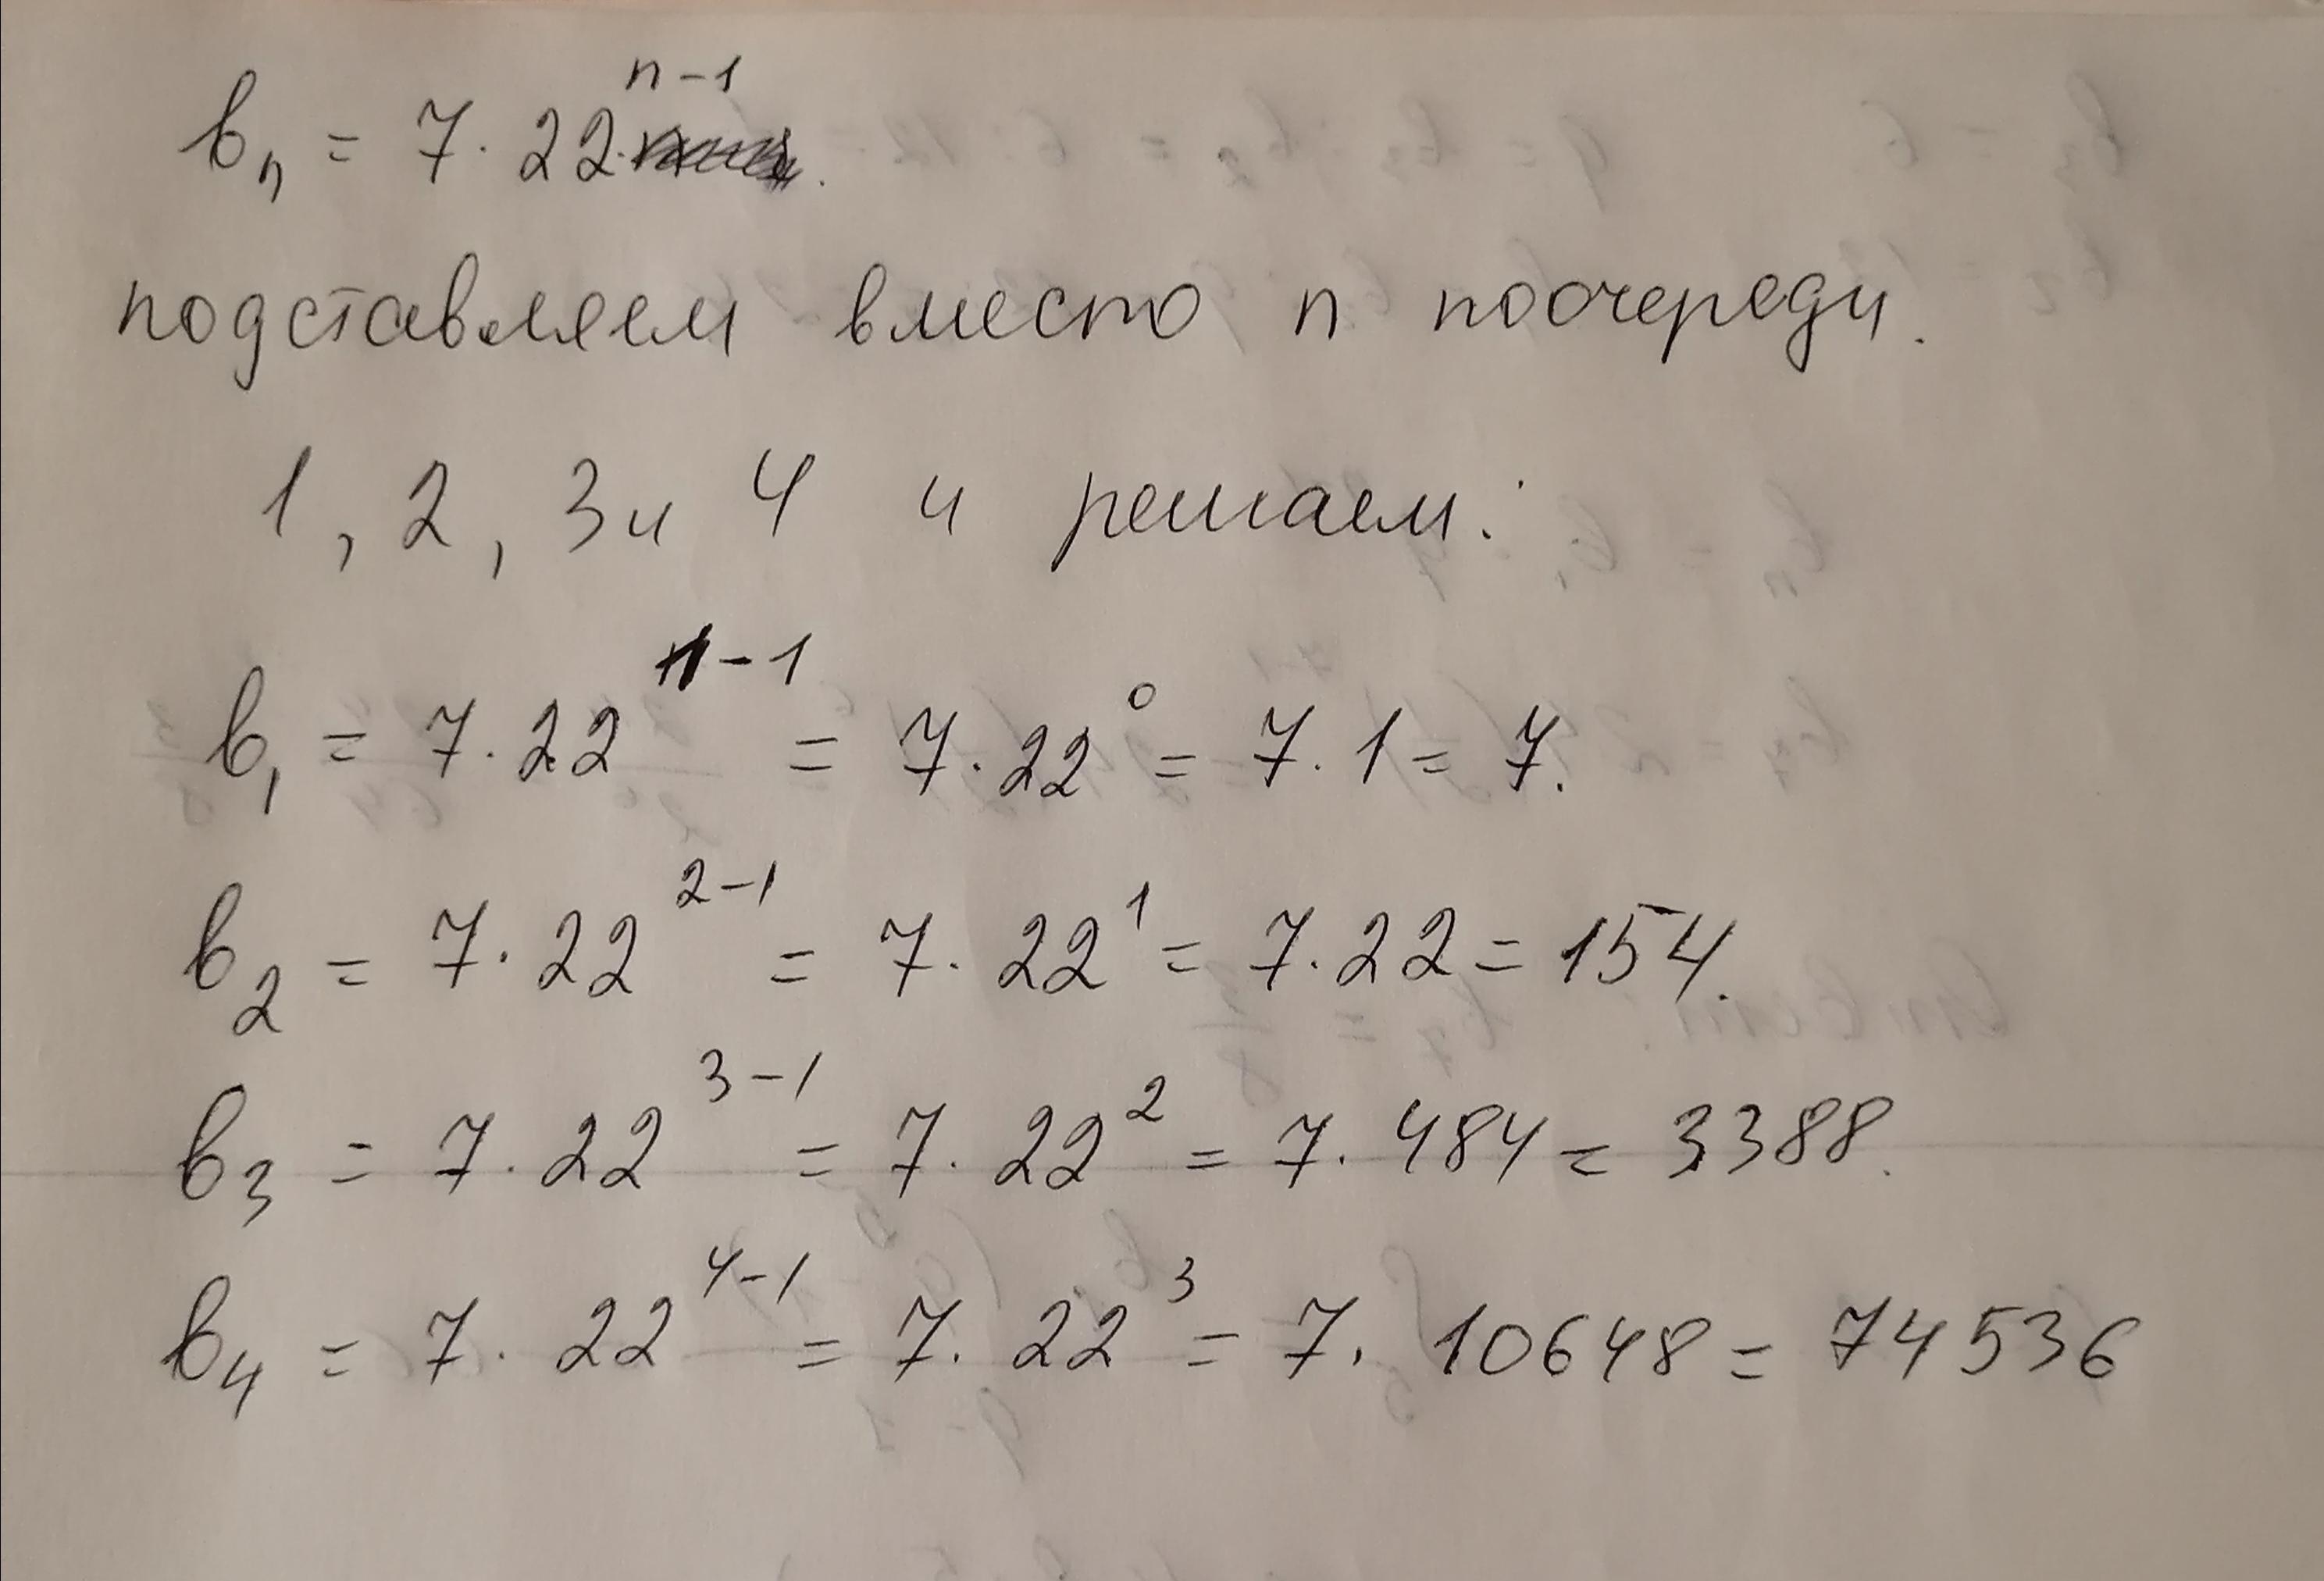 bₙ = 7 · 22ⁿ⁻¹.
подставляем вместо n поочереди.
1, 2, 3 и 4 и решаем:
b₁ = 7 · 22¹⁻¹ = 7 · 22⁰ = 7 · 1 = 7.
b₂ = 7 · 22²⁻¹ = 7 · 22¹ = 7 · 22 = 154.
b₃ = 7 · 22³⁻¹ = 7 · 22² = 7 · 484 = 3388.
b₄ = 7 · 22⁴⁻¹ = 7 · 22³ = 7 · 10648 = 74536